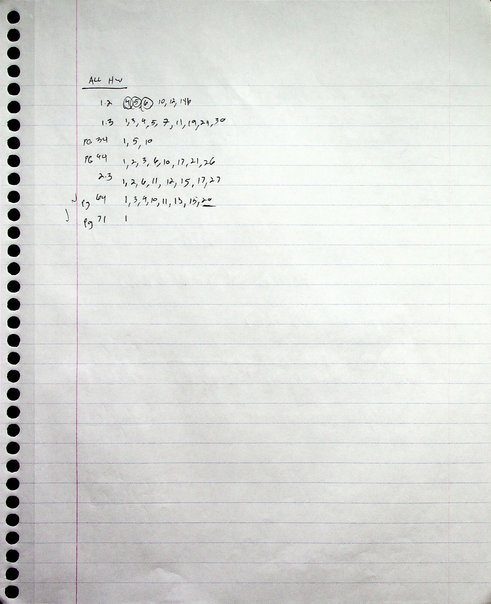 ALL HW
1.2 4, 5, 6, 10, 12, 14b
1.3 1, 3, 4, 5, 7, 11, 19, 21, 30
PG 34 1, 5, 10
PG 44 1, 2, 3, 6, 10, 17, 21, 26
2.3 1, 2, 6, 11, 12, 15, 17, 27
Pg 64 1, 3, 9, 10, 11, 13, 15, 20
Pg 71 1